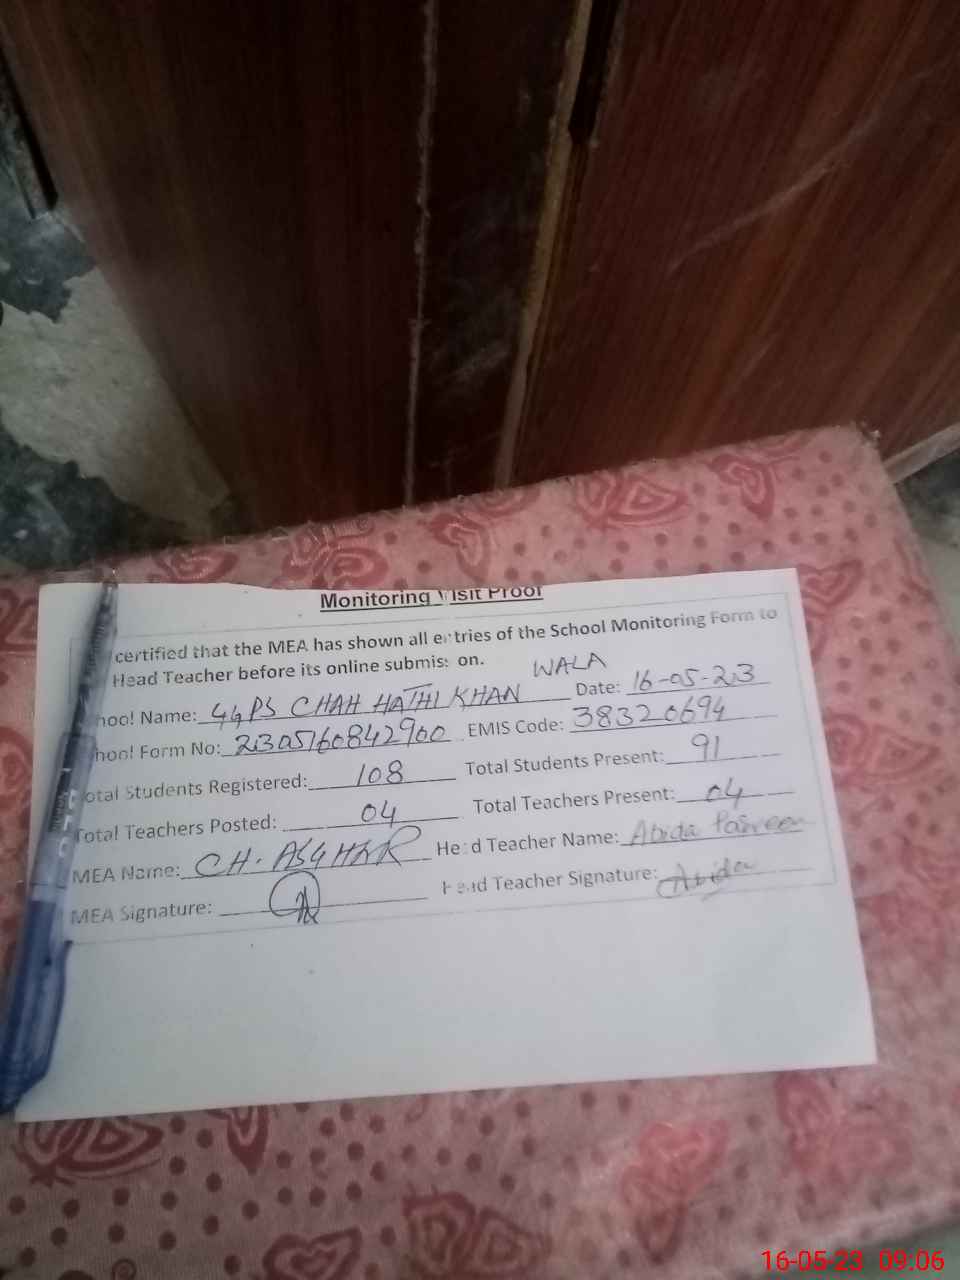 Monitoring Visit Proof
certified that the MEA has shown all entries of the School Monitoring Form to
Head Teacher before its online submission.
WALA
hool Name: GGPS CHAH HATHI KHAN Date: 16-05-23
hool Form No: 2305160842900 EMIS Code: 38320694
otal Students Registered: 108 Total Students Present: 91
Total Teachers Posted: 04 Total Teachers Present: 04
MEA Name: CH. ASGHAR Head Teacher Name: Abida Parveen
MEA Signature: Head Teacher Signature: Abida
16-05-23 09.06